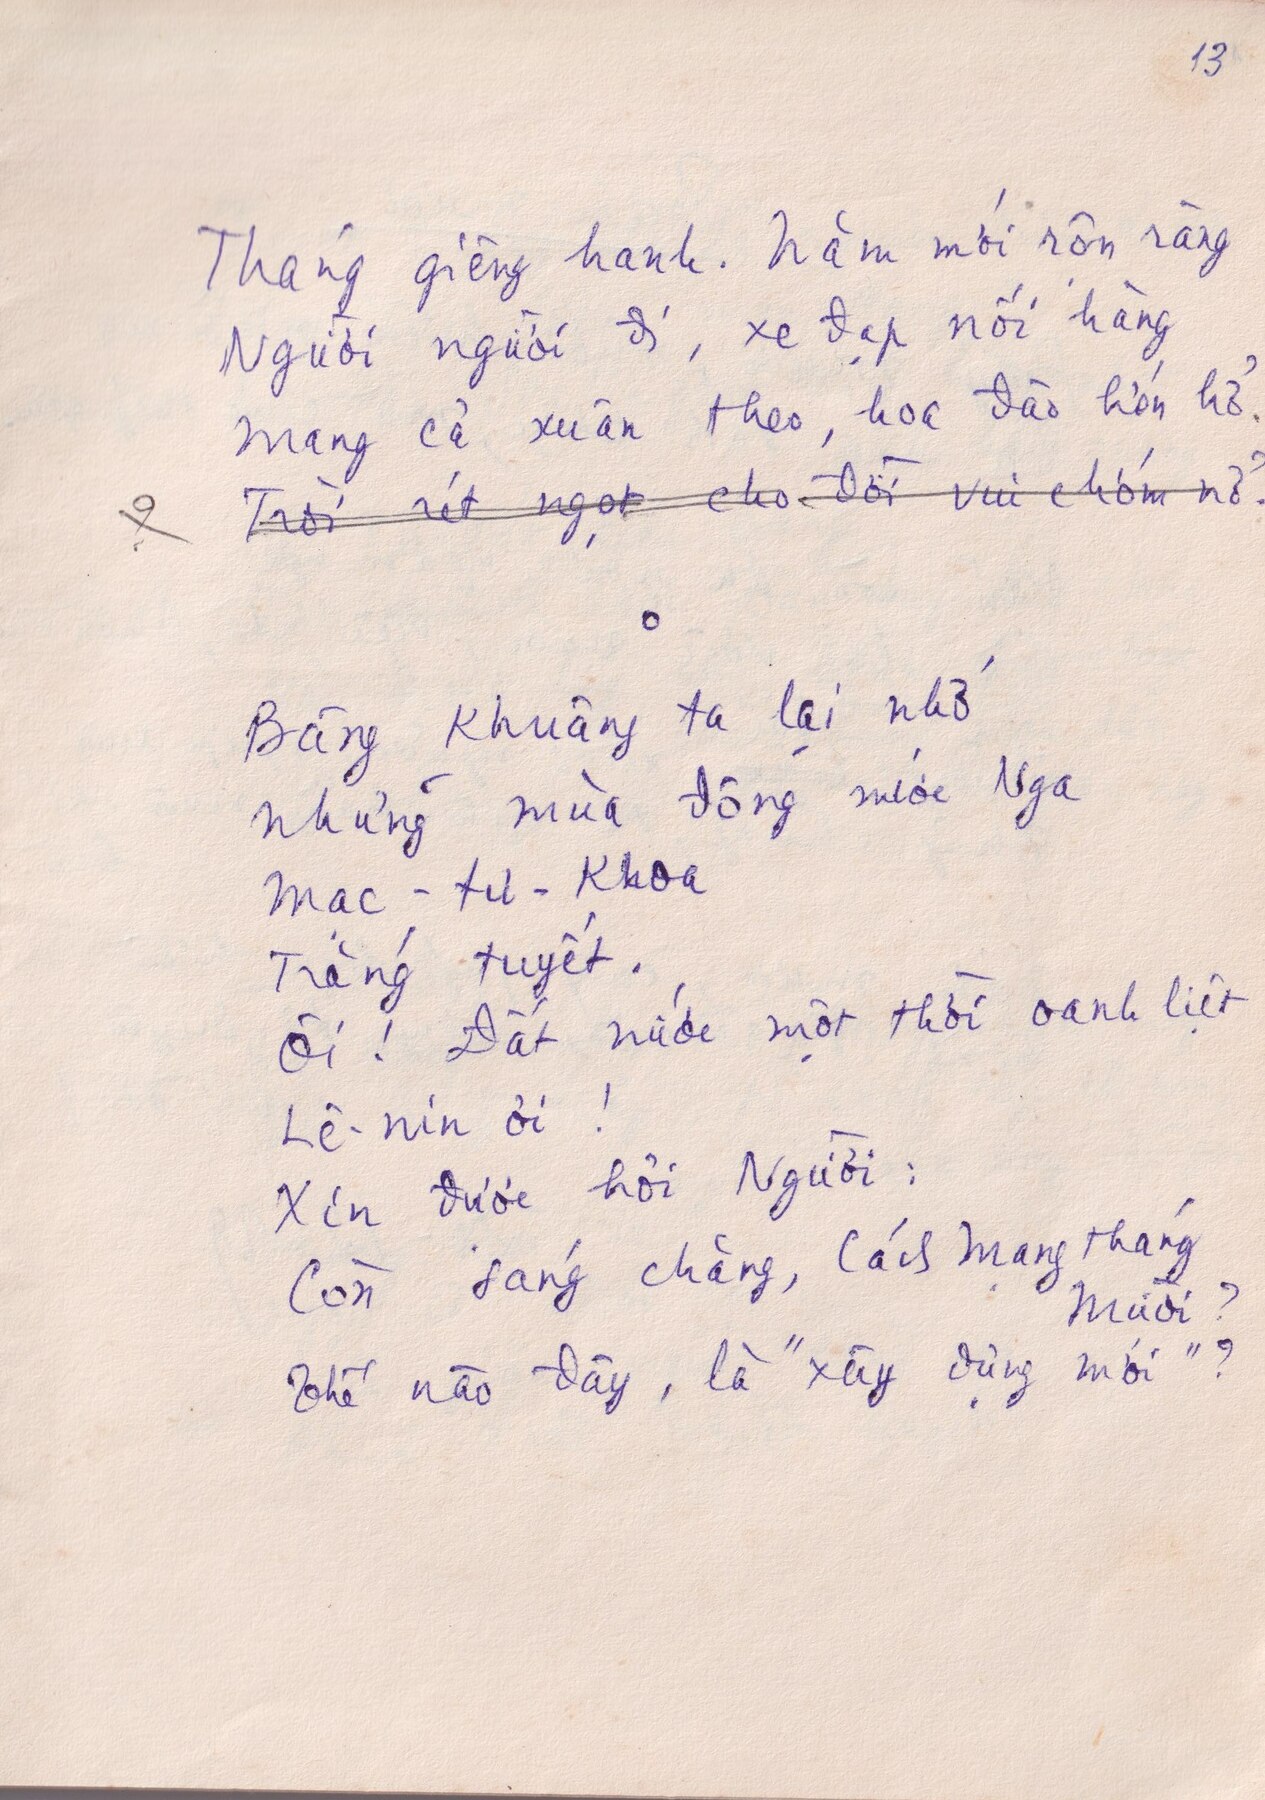 13
Tháng giêng hanh. Năm mới rộn ràng
Người người đi, xe đạp nối hàng
Mang cả xuân theo, hoa đào hớn hở.
Trời rét ngọt cho đời vui chớm nở.
Bâng khuâng ta lại nhớ
Những mùa đông nước Nga
Mac-tư-khoa
Trắng tuyết.
Ôi! Đất nước một thời oanh liệt
Lê-nin ơi!
Xin được hỏi Người:
Còn sáng chăng, Cách Mạng tháng
Mười?
Thế nào đây, là "xây dựng mới"?